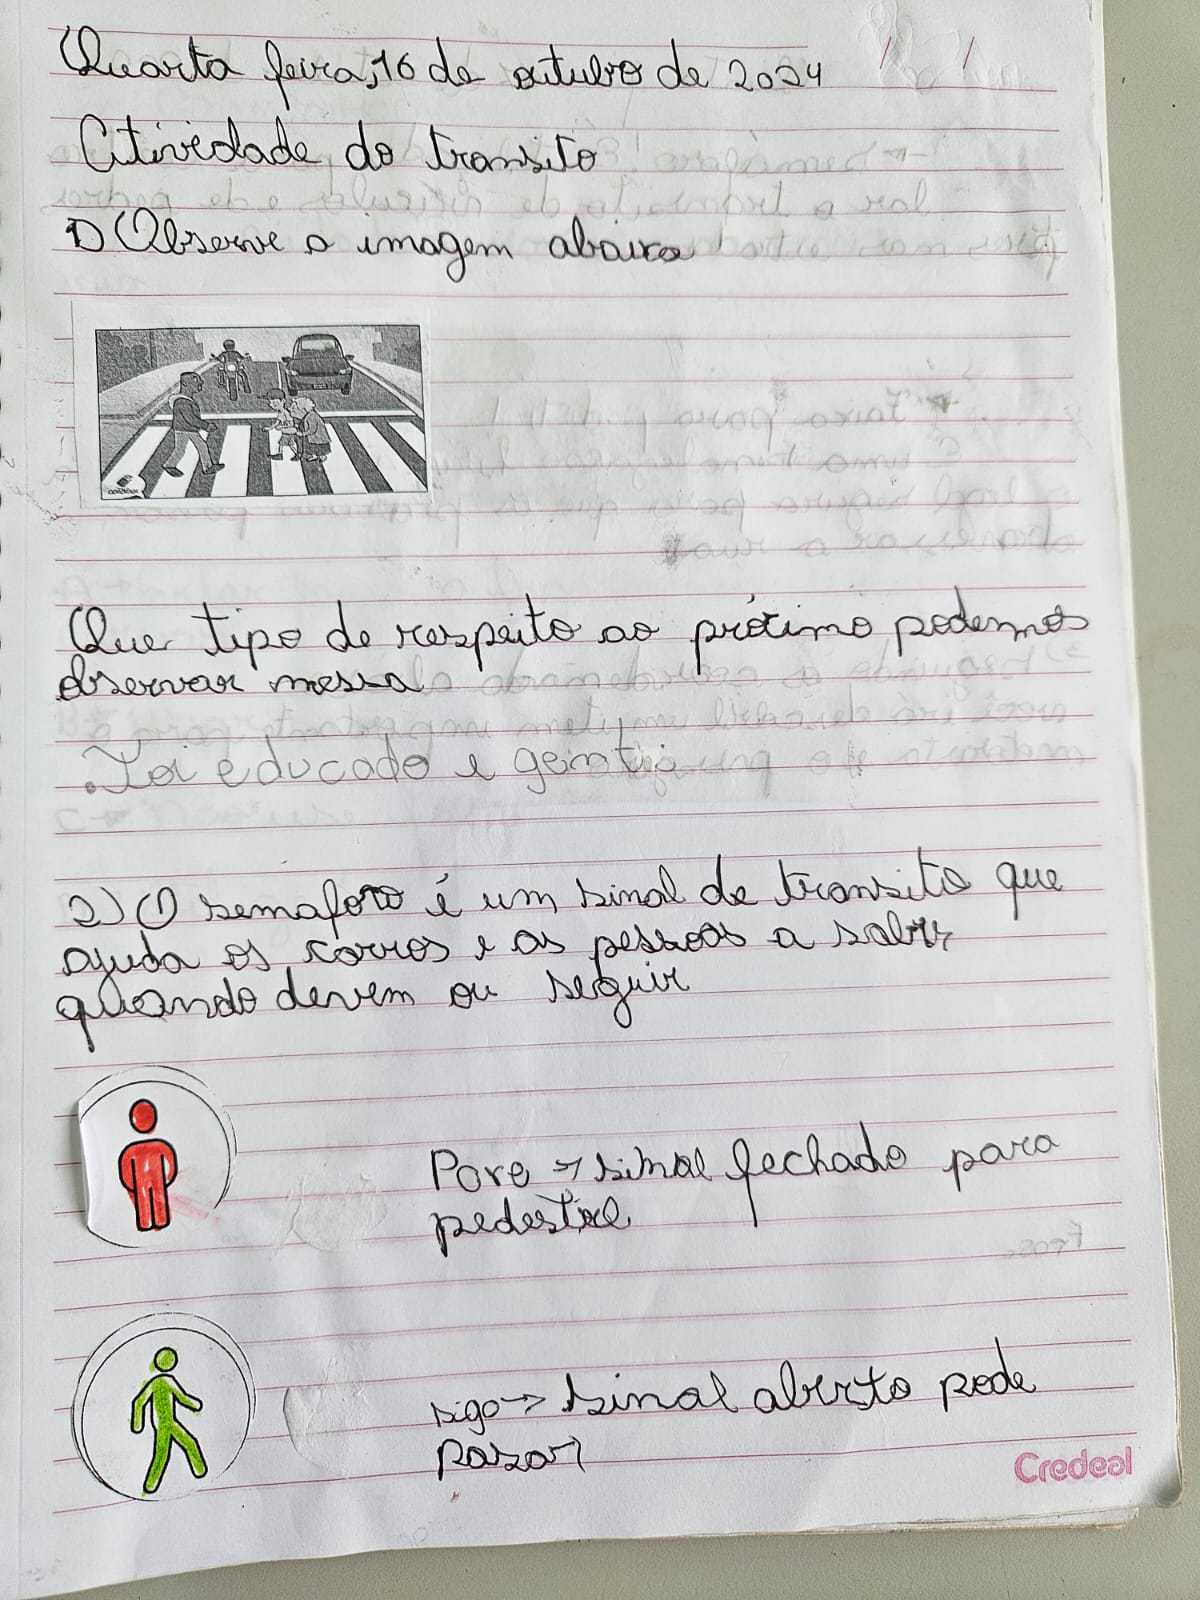 Quarta feira, 16 de outubro de 2024
Atividade do transito
1) Observe a imagem abaixo
Que tipo de respeito ao próximo podemos
observar nessa
. Foi educado e gentil
2) O semaforo é um sinal de transito que
ajuda os carros e as pessoas a saber
quando devem ou seguir
Pare → sinal fechado para
pedestre
siga → sinal aberto pode
pasar
Credeal